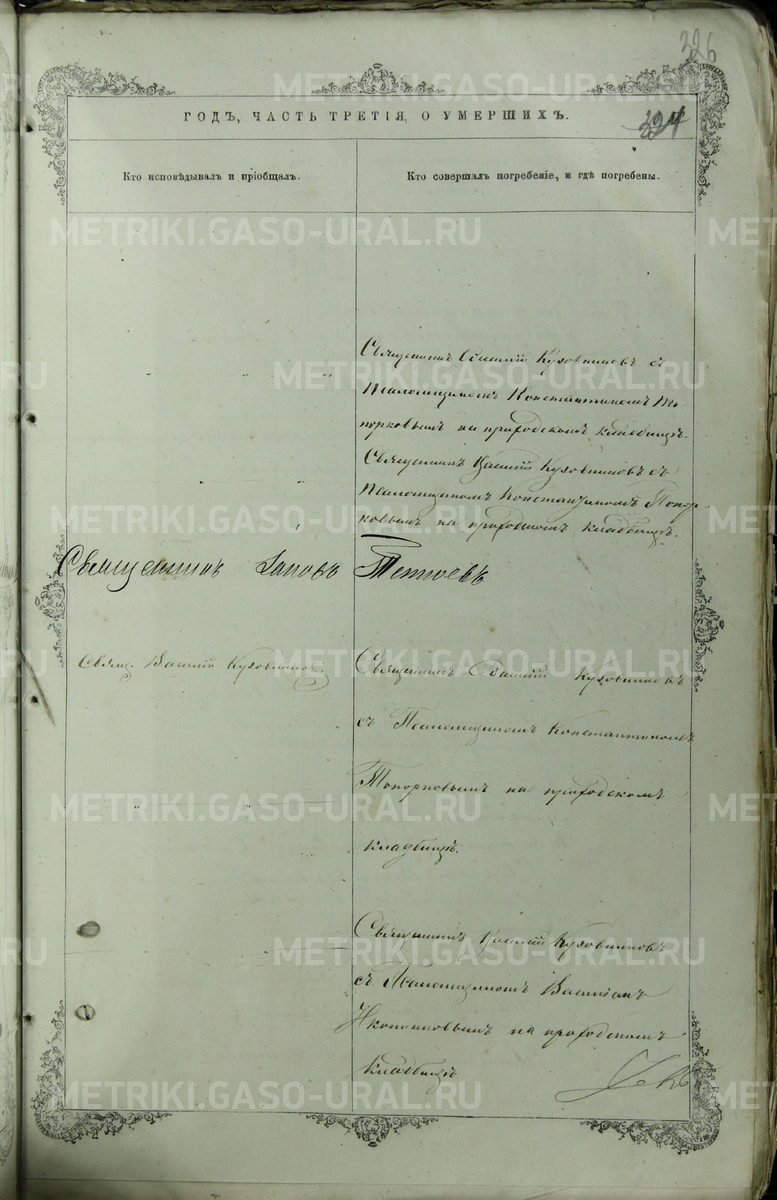 326
324
ГОДЪ, ЧАСТЬ ТРЕТІЯ, О УМЕРШИХЪ.
Кто исповѣдывалъ и пріобщалъ.
Кто совершалъ погребеніе, и гдѣ погребены.
Священникъ Василій Кузовниковъ съ
Псаломщикомъ Константиномъ То-
порковымъ на приходскомъ кладбищѣ.
Священникъ Василій Кузовниковъ съ
Псаломщикомъ Константиномъ Топор-
ковымъ на приходскомъ кладбищѣ.
Священникъ
Свящ. Василій Кузовниковъ.
Священникъ Василій Кузовниковъ
съ Псаломщикомъ Константиномъ
Топорковымъ на приходскомъ
кладбищѣ.
Священникъ Василій Кузовниковъ
съ Псаломщикомъ Василіемъ
на приходскомъ
кладбищѣ.
METRIKI.GASO-URAL.RU